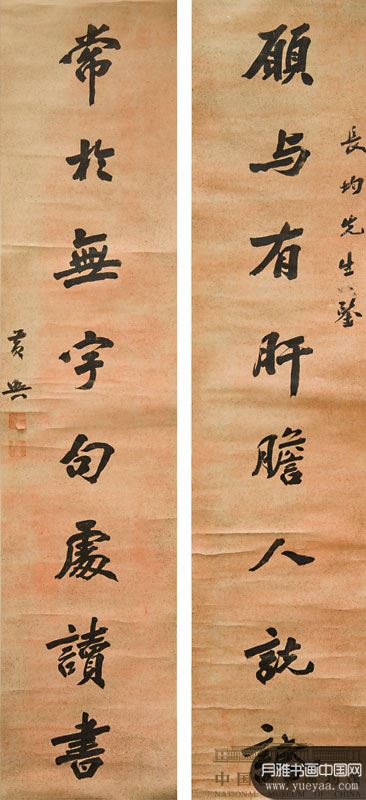 長均先生鑒
願与有肝膽人說
常於無字句處讀書
黃興
中国
NATIONAL CHINA
月雅书画中国网
www.yueyaa.com